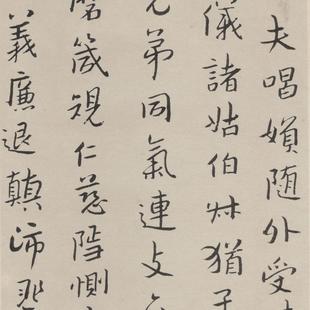 夫唱媍隨外受
儀諸姑伯叔猶子
兄弟同氣連支
磨箴規仁慈隱惻
義廉退顛沛匪